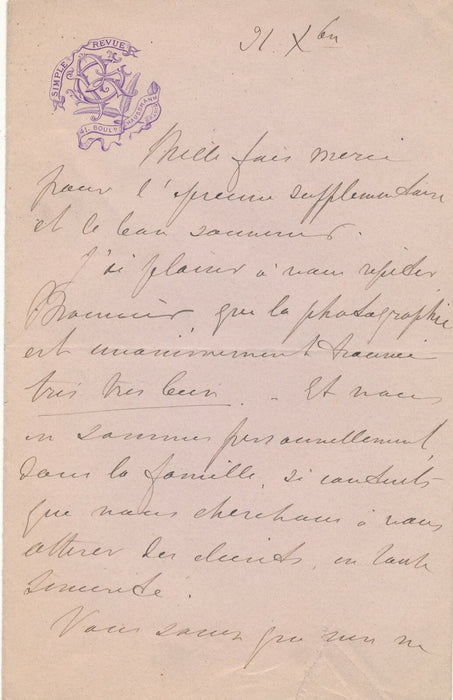 SIMPLE REVUE
BOULD HAUSSMANN
Xbre
Mille fois merci
pour l'épreuve supplémentaire
et le bon souvenir.
J'ai plaisir à vous répéter,
Monsieur, que la photographie
est unanimement trouvée
très très bien. - Et nous
en sommes personnellement,
dans la famille, si contents
que nous cherchons à vous
attirer des clients, en toute
sincérité.
Vous savez que rien ne